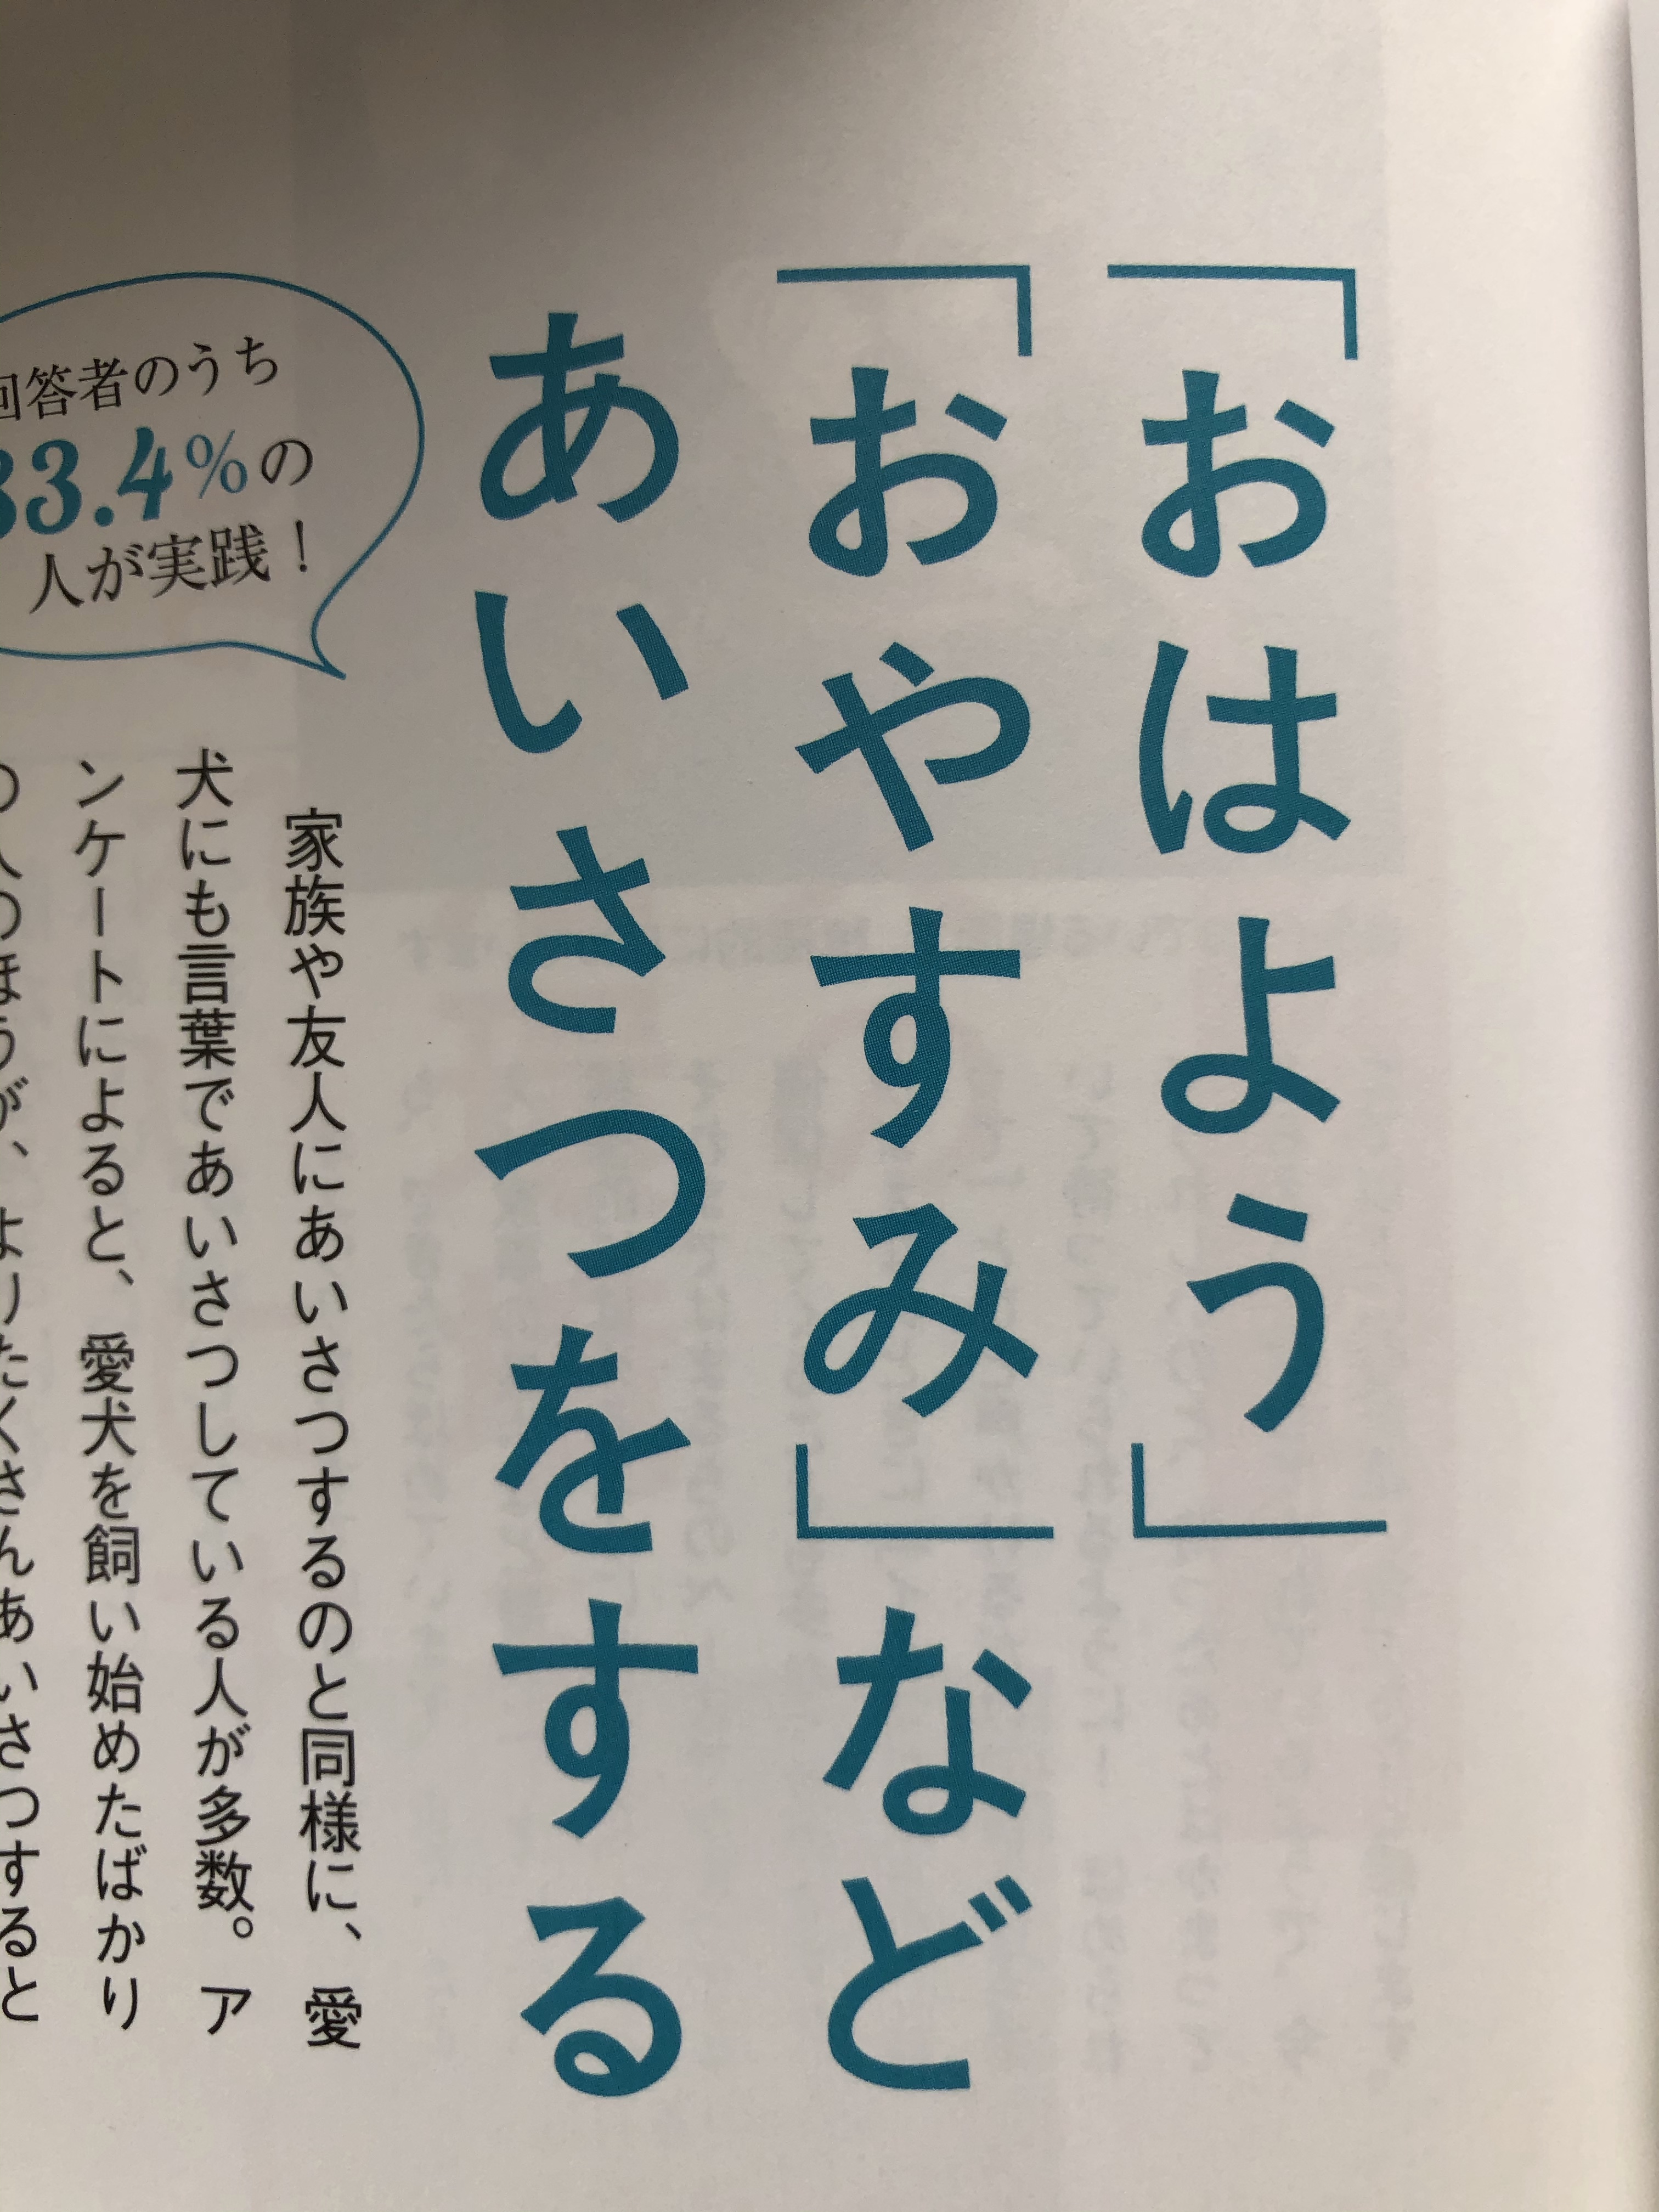 「おはよう」
「おやすみ」など
あいさつをする
回答者のうち
33.4%の
人が実践！
家族や友人にあいさつするのと同様に、愛
犬にも言葉であいさつしている人が多数。ア
ンケートによると、愛犬を飼い始めたばかり
の人のほうが、よりたくさんあいさつすると